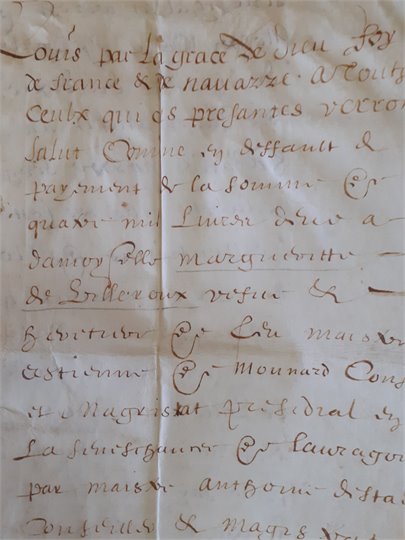 Louis par la grace de dieu Roy
de france & de navarre. A touts
ceulx qui ces presantes verron
salut Comme en deffault de
payement de la somme de
quatre mil livres deue a
damoyselle margueritte
de Villeroux vefve &
heretiere de feu maistre
estienne de Mounard Cons
et Magistrat presidial en
La seneschaucee de laurago
par maistre anthoine desta
Conseiller & magistrat